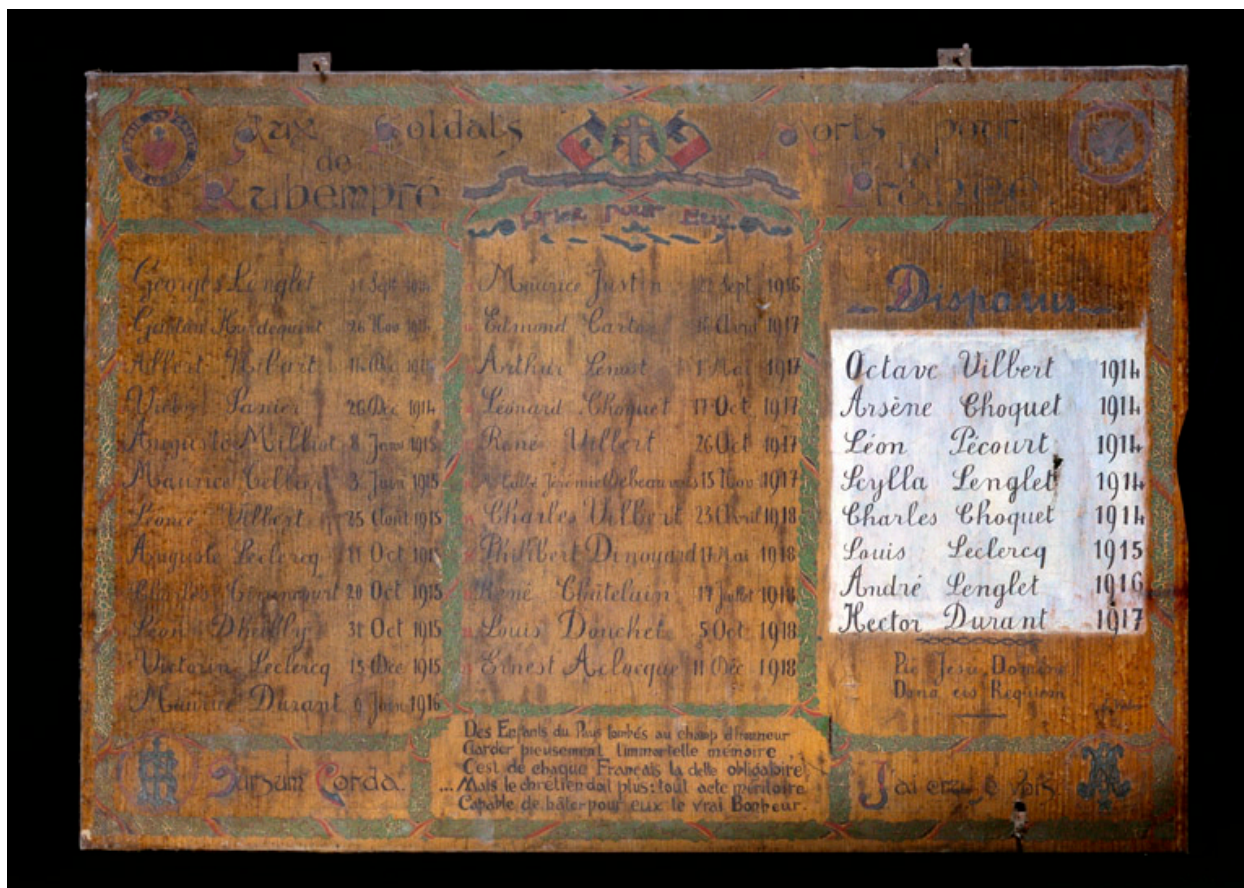 Aux Soldats
de
Rubempré
Morts pour
la
France
Prier pour Eux
Georges Lenglet Sept
26 Nov
Albert
26 Déc 1914
Auguste 8 Janv 1915
Maurice 3 Juin 1915
Léonce Vilbert 25 Août 1915
Auguste Leclercq 11 Oct 1915
Charles 20 Oct 1915
Léon Dheilly 31 Oct 1915
Victorin Leclercq 15 Déc 1915
Maurice Durant 6 Juin 1916
Maurice Justin 22 Sept 1916
Edmond 16 Avril 1917
Arthur Mai 1917
Léonard Choquet 17 Oct 1917
René Vilbert 26 Oct 1917
Jérémie Debeauvais 15 Nov 1917
Charles Vilbert 23 Avril 1918
Philibert Dinouard 17 Mai 1918
René Châtelain 17 Juillet 1918
Louis Douchet 5 Oct 1918
Ernest Aclocque 11 Déc 1918
Disparus
Octave Vilbert 1914
Arsène Choquet 1914
Léon Pécourt 1914
Scylla Lenglet 1914
Charles Choquet 1914
Louis Leclercq 1915
André Lenglet 1916
Hector Durant 1917
Pie Jesu Domine
Dona eis Requiem
Sursum Corda.
Des Enfants du Pays tombés au champ d'honneur
Garder pieusement l'immortelle mémoire
C'est de chaque Français la dette obligatoire
... Mais le chrétien doit plus: tout acte méritoire
Capable de hâter pour eux le vrai Bonheur.
J'ai cru, je vois